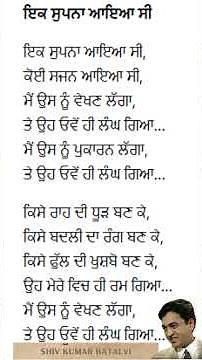 ਇਕ ਸੁਪਨਾ ਆਇਆ ਸੀ
ਇਕ ਸੁਪਨਾ ਆਇਆ ਸੀ,
ਕੋਈ ਸਜਨ ਆਇਆ ਸੀ,
ਮੈਂ ਉਸ ਨੂੰ ਵੇਖਣ ਲੱਗਾ,
ਤੇ ਉਹ ਓਵੇਂ ਹੀ ਲੰਘ ਗਿਆ...
ਮੈਂ ਉਸ ਨੂੰ ਪੁਕਾਰਨ ਲੱਗਾ,
ਤੇ ਉਹ ਓਵੇਂ ਹੀ ਲੰਘ ਗਿਆ...
ਕਿਸੇ ਰਾਹ ਦੀ ਧੂੜ ਬਣ ਕੇ,
ਕਿਸੇ ਬਦਲੀ ਦਾ ਰੰਗ ਬਣ ਕੇ,
ਕਿਸੇ ਫੁੱਲ ਦੀ ਖੁਸ਼ਬੋ ਬਣ ਕੇ,
ਉਹ ਮੇਰੇ ਵਿਚ ਹੀ ਰਮ ਗਿਆ...
ਮੈਂ ਉਸ ਨੂੰ ਵੇਖਣ ਲੱਗਾ,
ਤੇ ਉਹ ਓਵੇਂ ਹੀ ਲੰਘ ਗਿਆ...
SHIV KUMAR BATALVI